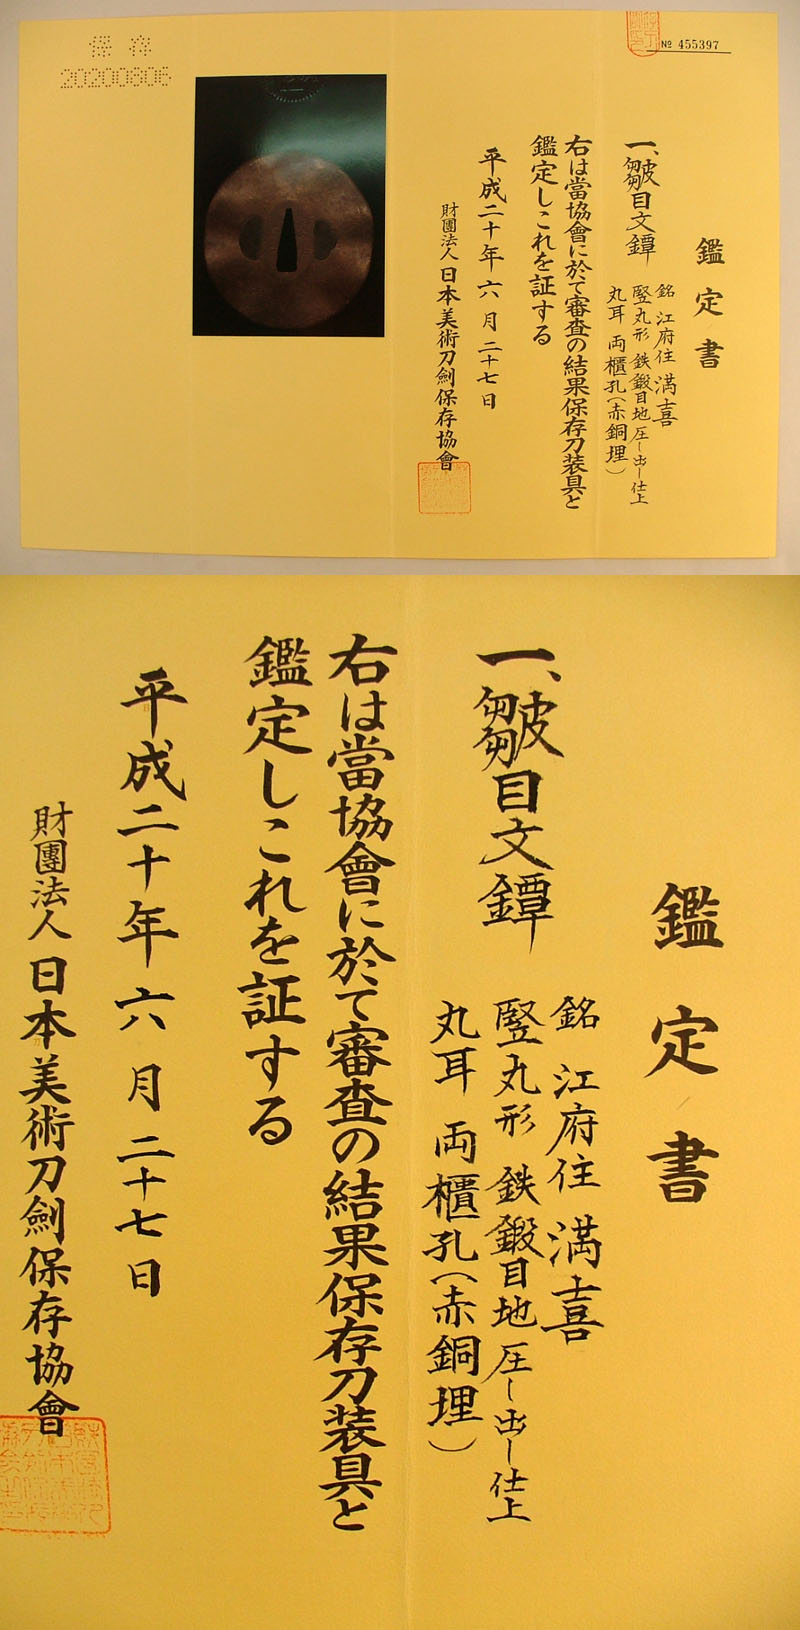 保存
20200606
№ 455397
鑑定書
一、皺目文鐔
銘 江府住 満喜
竪丸形 鉄鍛目地 圧し出し仕上
丸耳 両櫃孔(赤銅埋)
右は當協會に於て審査の結果保存刀装具と
鑑定しこれを証する
平成二十年六月二十七日
財團法人 日本美術刀劍保存協會
鑑定書
一、皺目文鐔
銘 江府住 満喜
竪丸形 鉄鍛目地 圧し出し仕上
丸耳 両櫃孔(赤銅埋)
右は當協會に於て審査の結果保存刀装具と
鑑定しこれを証する
平成二十年六月二十七日
財團法人 日本美術刀劍保存協會